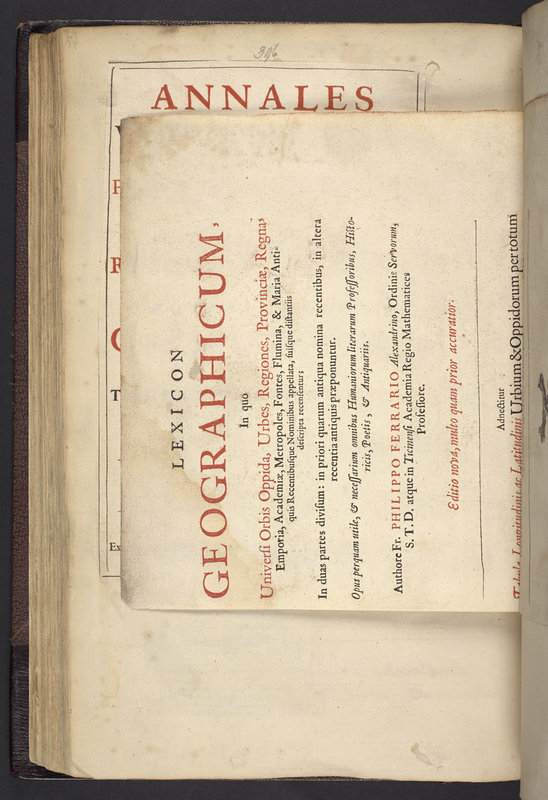 396
ANNALES
P
R
T
Ex
LEXICON
GEOGRAPHICUM,
In quo
Universi Orbis Oppida, Urbes, Regiones, Provinciæ, Regna,
Emporia, Academiæ, Metropoles, Fontes, Flumina, & Maria Anti-
quis Recentibusque Nominibus appellata, suisque distantiis
descripta recensentur;
In duas partes divisum: in priori quarum antiqua nomina recentibus, in altera
recentia antiquis præponuntur.
Opus perquam utile, & necessarium omnibus Humaniorum literarum Professoribus, Histo-
ricis, Poetis, & Antiquariis.
Authore Fr. PHILIPPO FERRARIO Alexandrino, Ordinis Servorum,
S. T. D. atque in Ticinensi Academia Regio Mathematices
Professore.
Editio nova, multo quam prior accuratior.
Adnectitur
Tabula Longitudinis ac Latitudinis Urbium & Oppidorum per totum